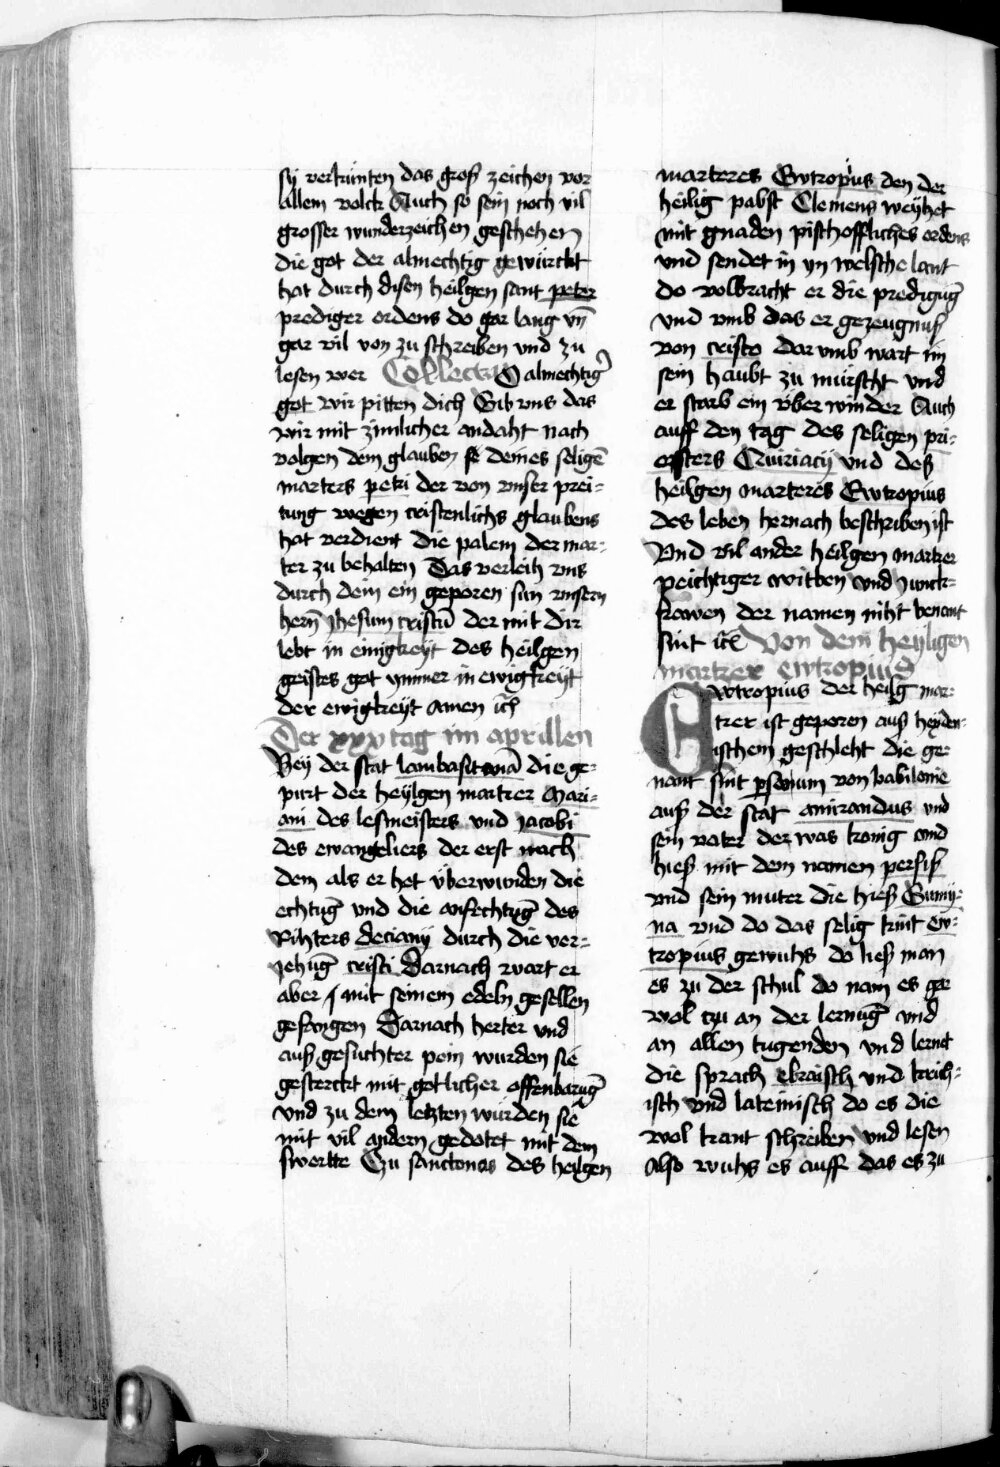 sy verkunten das groß zeichen vor
allem volck Auch so sein noch vil
grosser wunderzeichen geschehen
die got der almechtig gewürckt
hat durch disen heilgen sant peter
prediger ordens do gar lang vn̄
gar vil von zu schreiben vnd zu
lesen wer Collecta O almechtiḡ
got wir pitten dich Gib vns das
wir mit zimlicher andaht nach
volgen dem glauben deines selige͂
marters petri der von vnser prei-
tung wegen cristenlichs glaubens
hat verdient die palem der mar-
ter zu behalten Das verleih vns
durch dein ein geporen sun vnsern
hern̄ Jhesum cristū der mit dir
lebt in einigkeyt des heilgen
geistes got ymmer in ewigkeyt
der ewigkeyt Amen
Der xxx tag im aprillen
Bey der stat die ge-
purt der heylgen martrer Mari-
ani des lesmeisters vnd Jacobi
des ewangeliers der erst nach
dem als er het überwunden die
echtuḡ vnd die anfechtuḡ des
Rihters deciany durch die ver-
jehūg cristi Darnach wart er
aber mit seinem edeln gesellen
gefangen Darnach herter vnd
auß gesuchter pein wurden sie
gesterckt mit gotlicher offenbaruḡ
vnd zu dem letzten wurden sie
mit vil andern gedotet mit dem
swertte Czu sanctonas des heilgen
marteres Ewtropius den der
heilig pabst Clemens weyhet
mit gnaden pischoffliches ordens
vnd sendet in yn welsche lant
do volbracht er die prediguḡ
vnd vmb das er gezeugnuß
von cristo dar vmb wart im
sein haubt zu mürscht vnd
er starb ein vberwinder Auch
auff den tag des seligen pri-
esters Quiriacij vnd deß
heilgen marteres Ewtropius
des leben hernach beschriben ist
Vnd vil ander heilgen martrer
peichtiger witben vnd Junck-
frawen der namen niht benant
sint Von dem heyligen
martrer ewtropius
Ewtropius der heilg mar-
trer ist geporen auß heyden-
ischem geschleht die ge-
nant sint von babilonie
auß der stat amirandus vnd
sein vater der was konig vnd
hieß mit dem namen persiß
vnd sein muter die hieß Gumy-
na vnd do das selig kint ew-
tropius gewuhs do ließ man
es zu der schul do nam es gar
wol czu an der lernūg vnd
an allen tugenden vnd lernt
die sprach ebraisch vnd krich-
isch vnd lateinisch do es die
wol kant schreiben vnd lesen
Also wuhs es auff das es zu